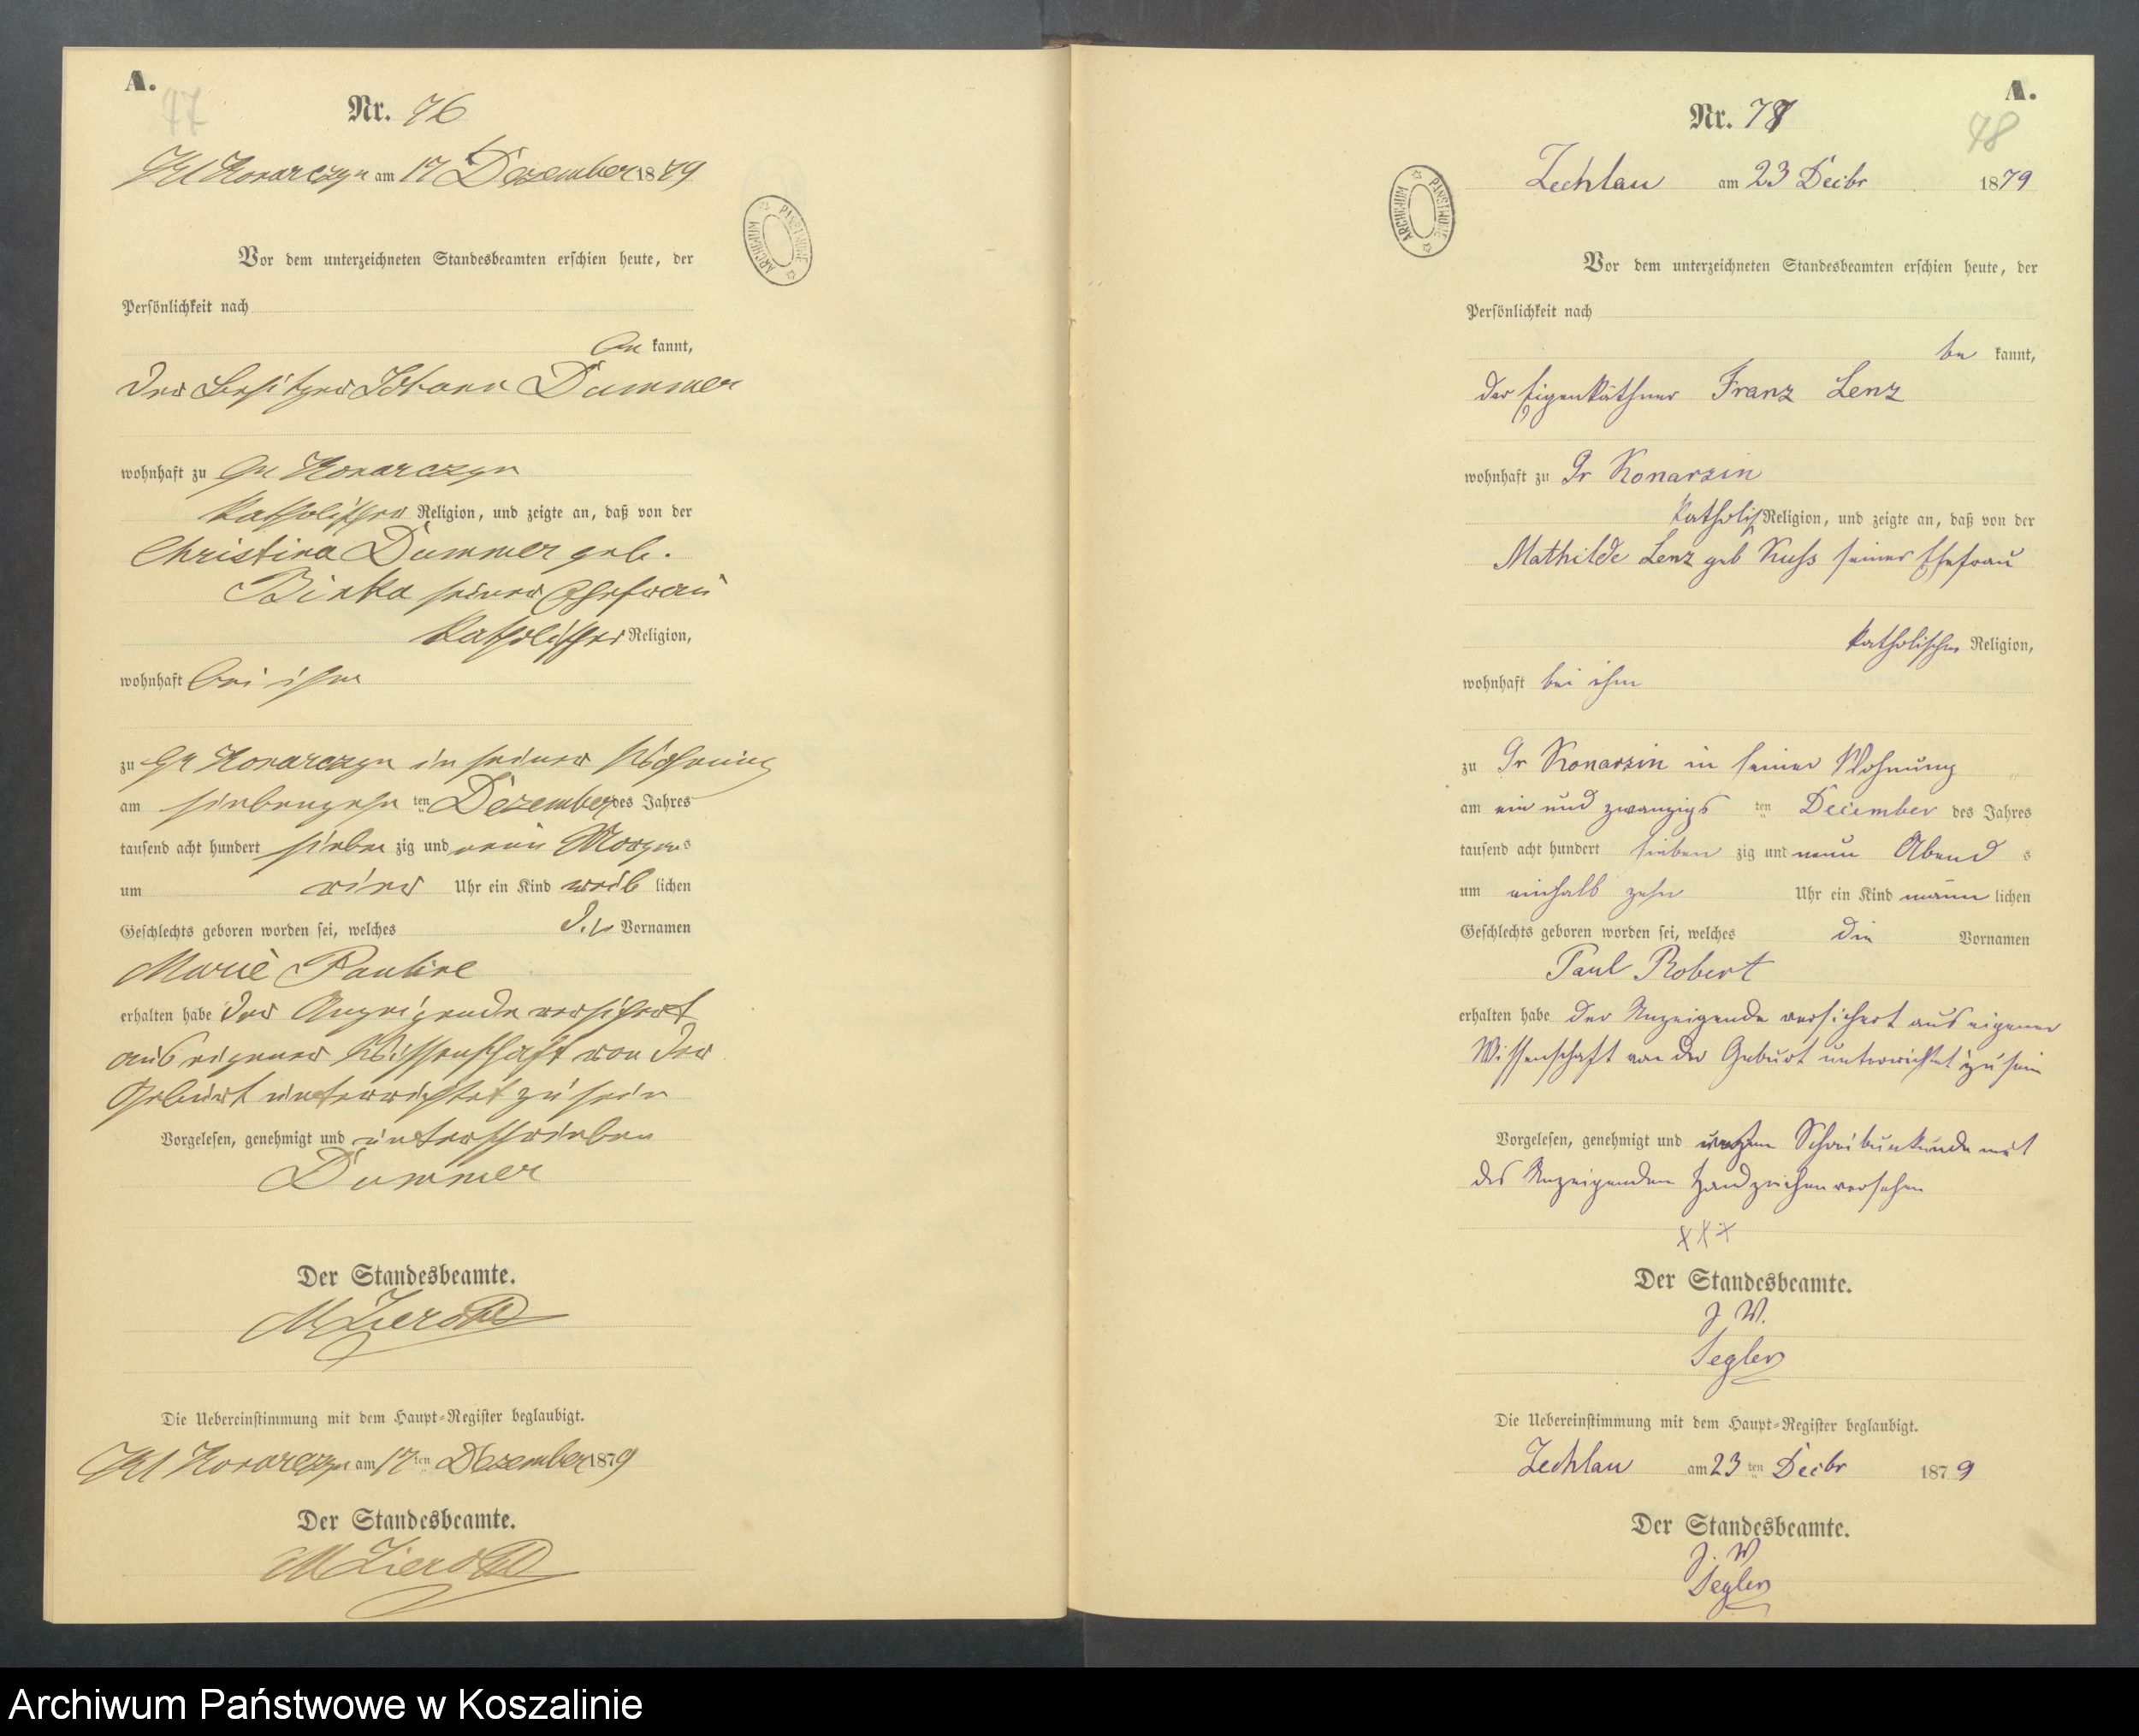 A.
47
Nr. 76
Kl Konarczyn am 17 Dezember 1879
ARCHIWUM PAŃSTWOWE
Vor dem unterzeichneten Standesbeamten erschien heute, der
Persönlichkeit nach
be kannt,
der Besitzer Johann Dummer
wohnhaft zu Gr Konarczyn
katholischer Religion, und zeigte an, daß von der
Christina Dummer geb.
Binka seiner Ehefrau
katholischer Religion,
wohnhaft bei ihm
zu Gr Konarczyn in seiner Wohnung
am siebenzehn ten Dezember des Jahres
tausend acht hundert sieben zig und neun Morgens
um vier Uhr ein Kind weib lichen
Geschlechts geboren worden sei, welches die Vornamen
Marie Pauline
erhalten habe der Anzeigende versichert
aus eigener Wissenschaft von der
Geburt unterrichtet zu sein
Vorgelesen, genehmigt und unterschrieben
Dummer
Der Standesbeamte.
Die Uebereinstimmung mit dem Haupt-Register beglaubigt.
Kl Konarczyn am 17 ten Dezember 1879
Der Standesbeamte.
A.
48
Nr. 77
Zechlau am 23 Decbr 1879
ARCHIWUM PAŃSTWOWE
Vor dem unterzeichneten Standesbeamten erschien heute, der
Persönlichkeit nach
be kannt,
der Eigenkäthner Franz Lenz
wohnhaft zu Gr Konarzin
katholisch Religion, und zeigte an, daß von der
Mathilde Lenz geb Kuss seiner Ehefrau
katholischer Religion,
wohnhaft bei ihm
zu Gr Konarzin in seiner Wohnung
am ein und zwanzigs ten December des Jahres
tausend acht hundert sieben zig und neun Abend s
um einhalb zehn Uhr ein Kind männ lichen
Geschlechts geboren worden sei, welches die Vornamen
Paul Robert
erhalten habe der Anzeigende versichert aus eigener
Wissenschaft von der Geburt unterrichtet zu sein
Vorgelesen, genehmigt und wegen Schreibunkunde mit
des Anzeigenden Handzeichen versehen
XXX
Der Standesbeamte.
J W.
Segler
Die Uebereinstimmung mit dem Haupt-Register beglaubigt.
Zechlau am 23 ten Decbr 1879
Der Standesbeamte.
J. W
Segler
Archiwum Państwowe w Koszalinie